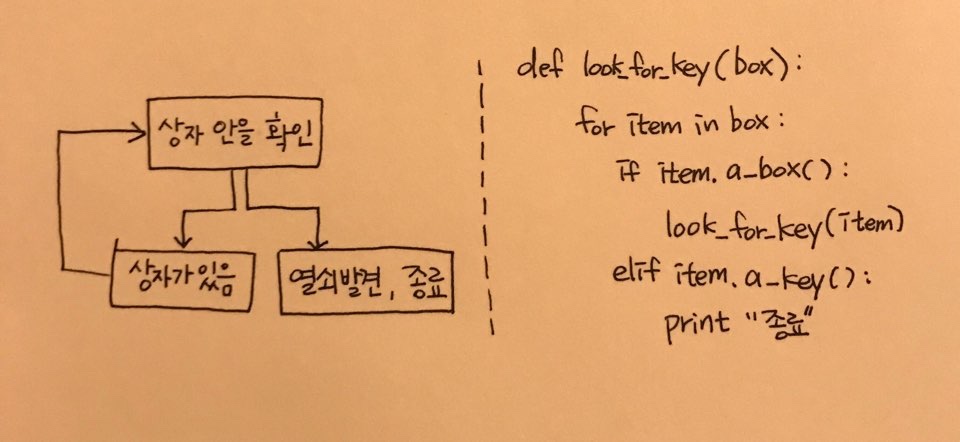 상자 안을 확인
상자가 있음
열쇠발견, 종료
def look_for_key(box):
for item in box:
if item. a_box():
look_for_key(item)
elif item. a_key():
print "종료"